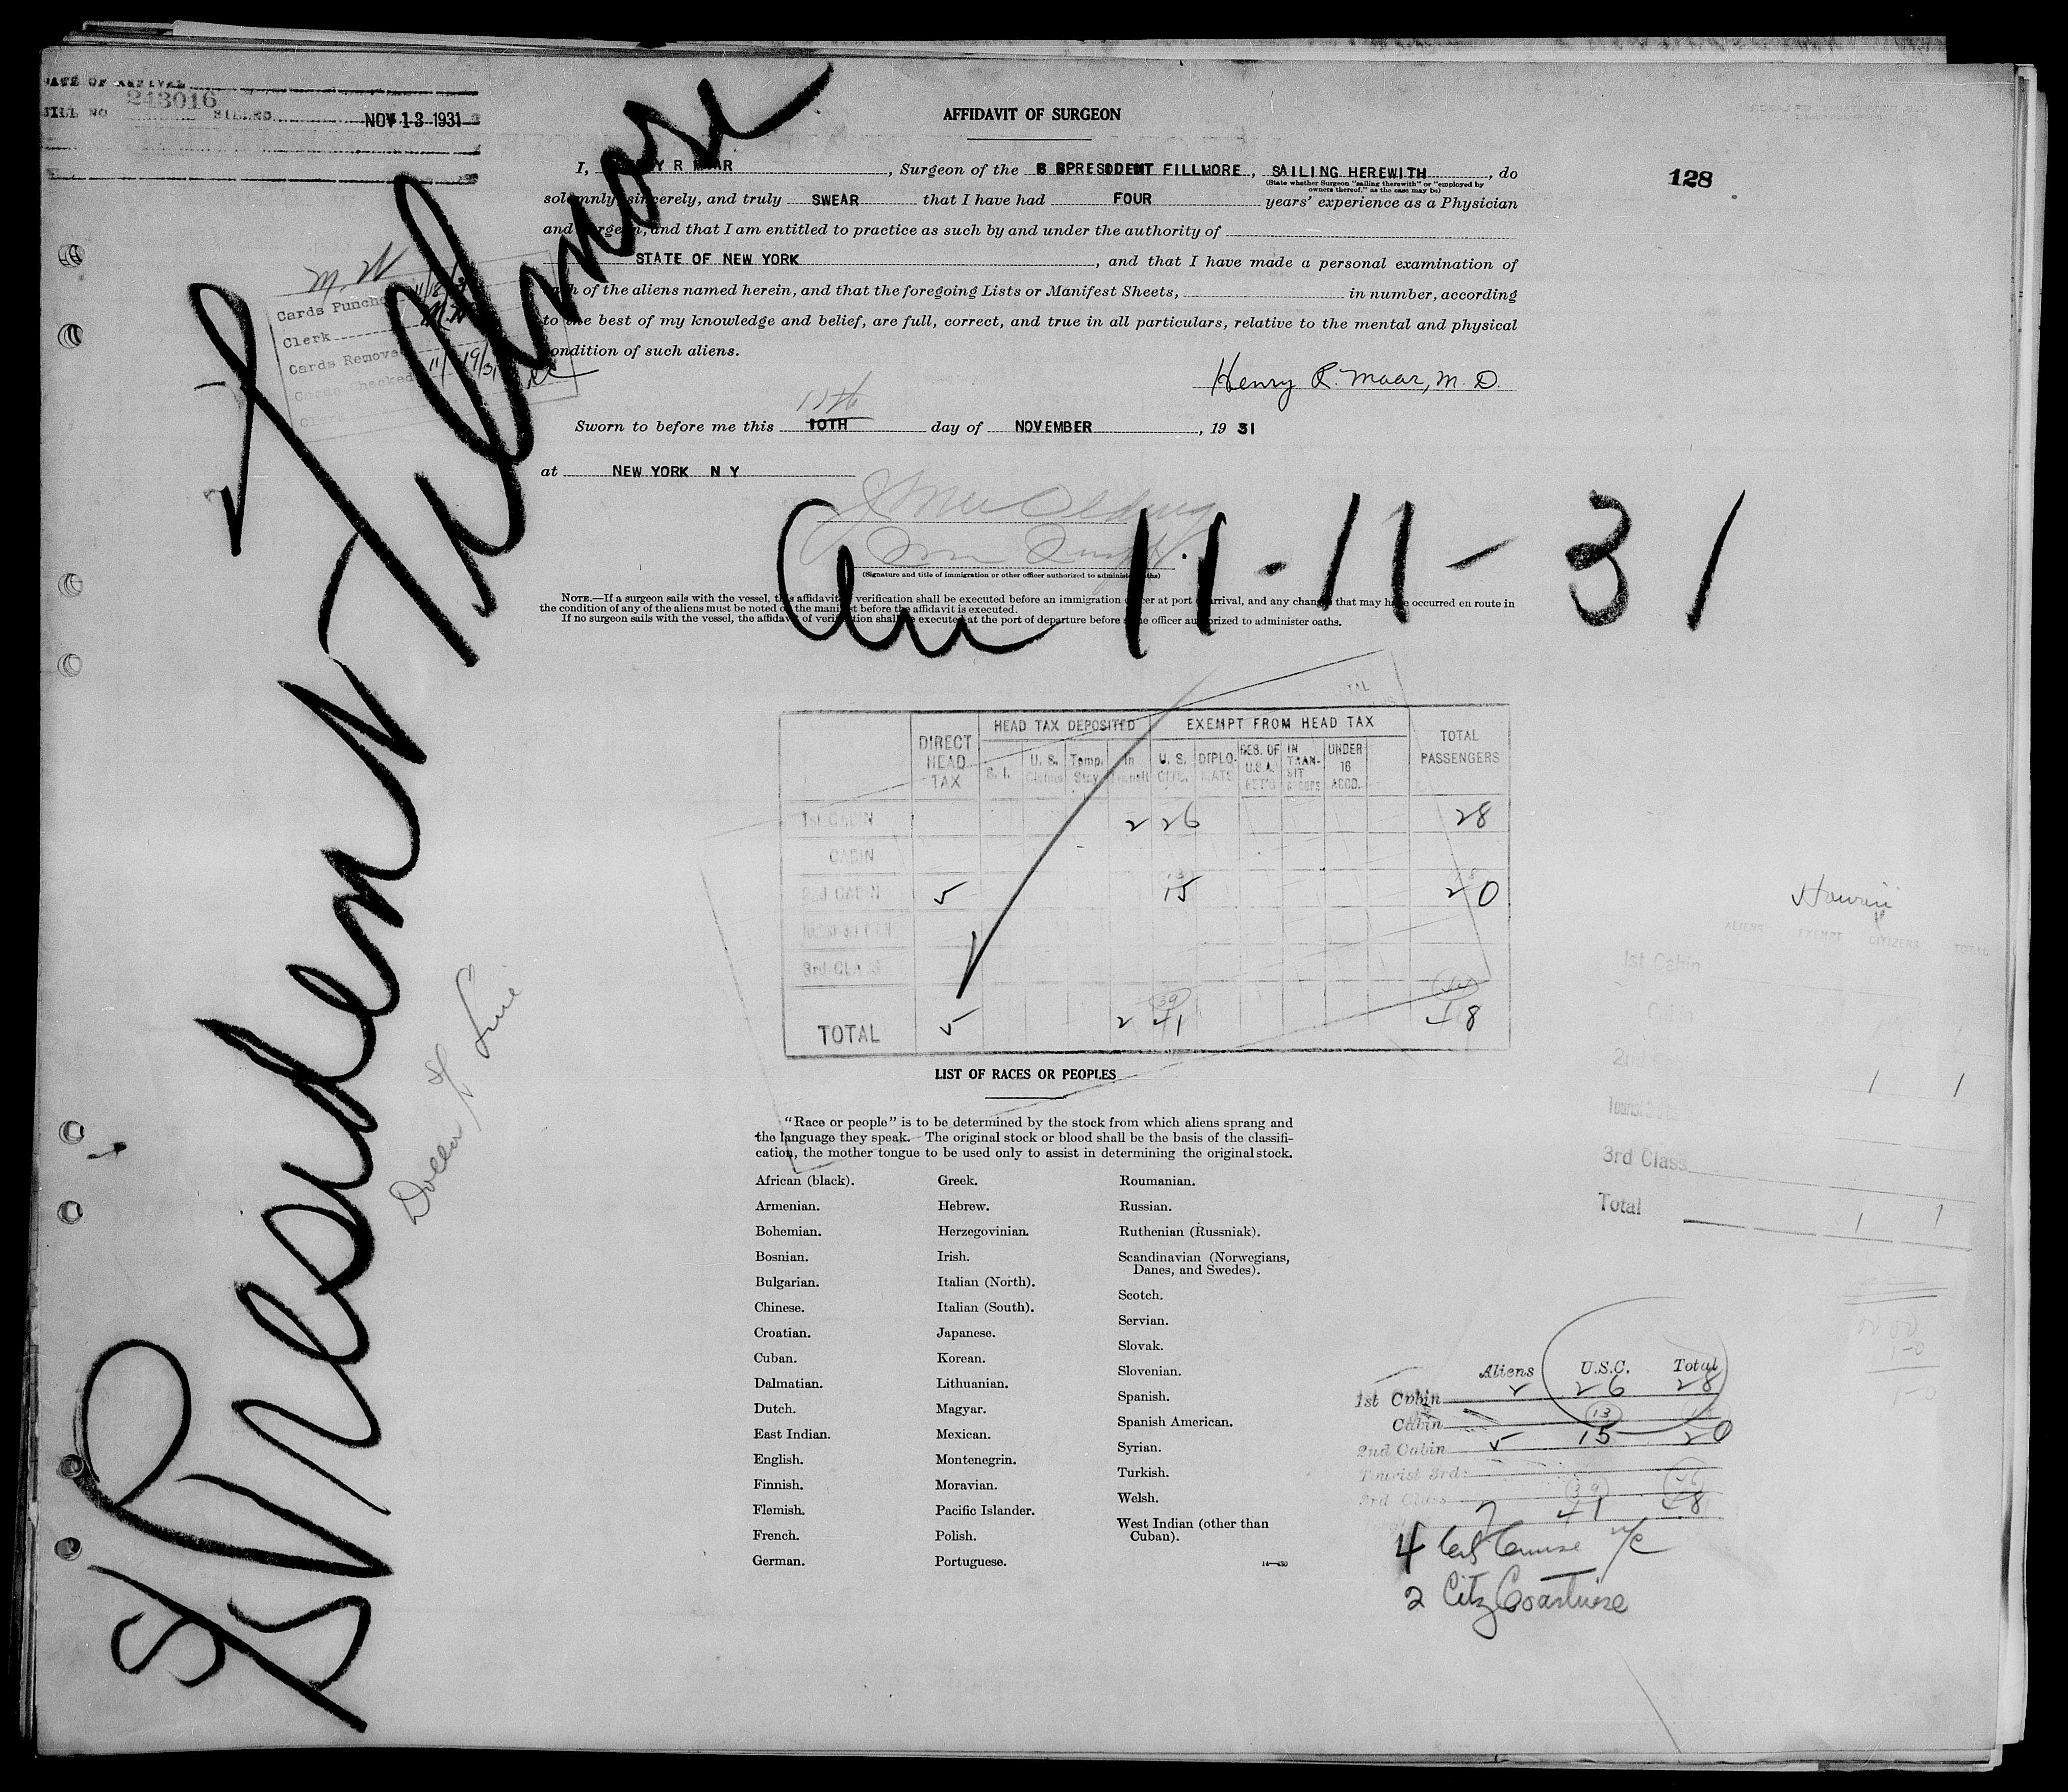 DATE OF ARRIVAL
243016
BILL NO BILLED NOV 13 1931
AFFIDAVIT OF SURGEON
128
I, Y R MAAR, Surgeon of the S SPRESIDENT FILLMORE, SAILING HEREWITH, do
(State whether Surgeon "sailing therewith" or "employed by
owners thereof," as the case may be)
solemnly, sincerely, and truly SWEAR that I have had FOUR years' experience as a Physician
and Surgeon, and that I am entitled to practice as such by and under the authority of
STATE OF NEW YORK, and that I have made a personal examination of
each of the aliens named herein, and that the foregoing Lists or Manifest Sheets, in number, according
to the best of my knowledge and belief, are full, correct, and true in all particulars, relative to the mental and physical
condition of such aliens.
Henry R. Maar, M. D.
11th
Sworn to before me this 10TH day of NOVEMBER, 19 31
at NEW YORK N Y
(Signature and title of immigration or other officer authorized to administer oaths)
NOTE.—If a surgeon sails with the vessel, this affidavit of verification shall be executed before an immigration officer at port of arrival, and any changes that may have occurred en route in
the condition of any of the aliens must be noted on the manifest before the affidavit is executed.
If no surgeon sails with the vessel, the affidavit of verification shall be executed at the port of departure before some officer authorized to administer oaths.
M. W
Cards Punched 11/18/31
Clerk
Cards Removed
Cards Checked 11/19/31
Clerk
S/S President Fillmore
Dollar S/S Line
11-11-31
DIRECT HEAD TAX
HEAD TAX DEPOSITED
EXEMPT FROM HEAD TAX
TOTAL PASSENGERS
S. I. U. S. Claims Temp. Stay In Transit U. S. CITS. DIPLO-MATS RES. OF U.S.A. RET'G IN TRAN-SIT GROUPS UNDER 16 ACCD.
1st CABIN 2 26 28
CABIN
2nd CABIN 5 15 20
3rd CLASS
39
TOTAL 5 2 41 48
LIST OF RACES OR PEOPLES
"Race or people" is to be determined by the stock from which aliens sprang and
the language they speak. The original stock or blood shall be the basis of the classifi-
cation, the mother tongue to be used only to assist in determining the original stock.
African (black).
Armenian.
Bohemian.
Bosnian.
Bulgarian.
Chinese.
Croatian.
Cuban.
Dalmatian.
Dutch.
East Indian.
English.
Finnish.
Flemish.
French.
German.
Greek.
Hebrew.
Herzegovinian.
Irish.
Italian (North).
Italian (South).
Japanese.
Korean.
Lithuanian.
Magyar.
Mexican.
Montenegrin.
Moravian.
Pacific Islander.
Polish.
Portuguese.
Roumanian.
Russian.
Ruthenian (Russniak).
Scandinavian (Norwegians,
Danes, and Swedes).
Scotch.
Servian.
Slovak.
Slovenian.
Spanish.
Spanish American.
Syrian.
Turkish.
Welsh.
West Indian (other than
Cuban).
Hawaii
ALIENS EXEMPT CITIZENS TOTAL
1st Cabin
Cabin
2nd 1 1
3rd Class
Total 1 1
Aliens U.S.C. Total
1st Cabin 2 26 28
Cabin 13
2nd Cabin 5 15 20
Tourist 3rd
3rd Class 39
7 41 48
4
2 Citz Coastwise